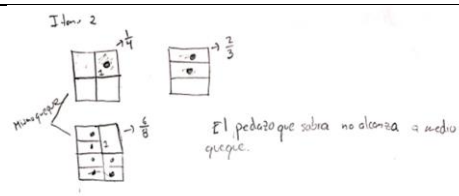 Item 2
1/4
2/3
1
Mismo queque
6/8
1
El pedazo que sobra no alcanza a medio
queque.